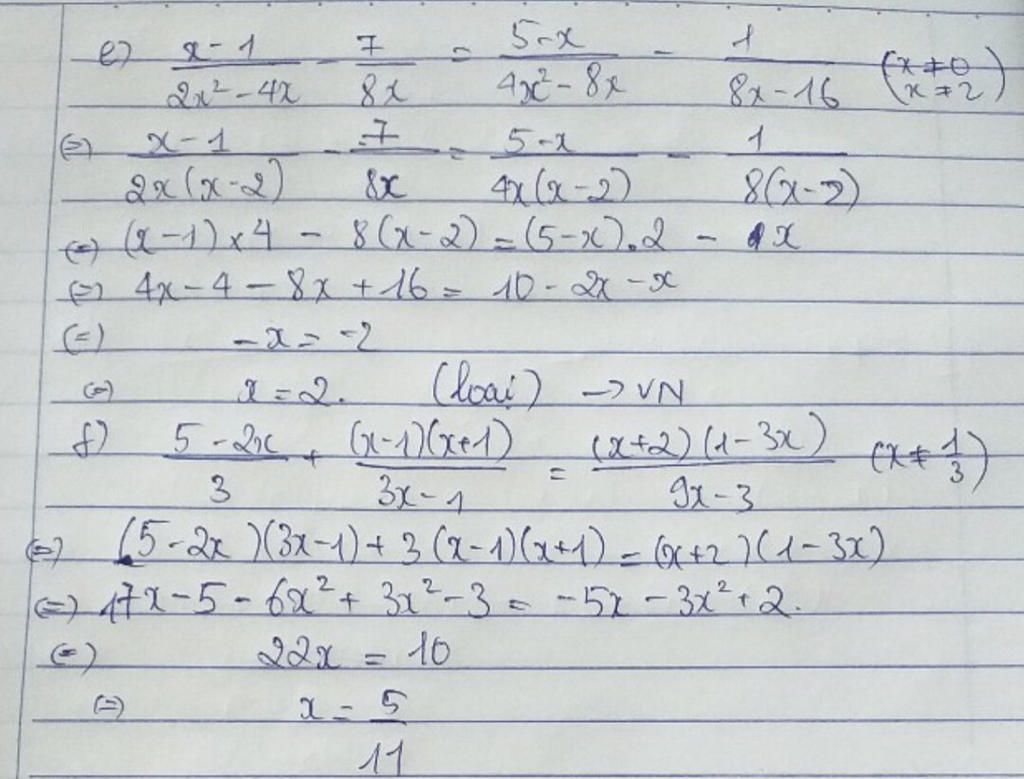 e) (x-1)/(2x² - 4x) - 7/(8x) = (5-x)/(4x² - 8x) - 1/(8x-16) (x ≠ 0, x ≠ 2)
(=) (x-1)/(2x(x-2)) - 7/(8x) = (5-x)/(4x(x-2)) - 1/(8(x-2))
(=) (x-1)×4 - 8(x-2) = (5-x).2 - x
(=) 4x-4-8x+16 = 10-2x-x
(=) -x = -2
(=) x = 2. (loại) → VN
f) (5-2x)/3 + ((x-1)(x+1))/(3x-1) = ((x+2)(1-3x))/(9x-3) (x ≠ 1/3)
(=) (5-2x)(3x-1) + 3(x-1)(x+1) = (x+2)(1-3x)
(=) 17x-5-6x²+3x²-3 = -5x-3x²+2.
(=) 22x = 10
(=) x = 5/11